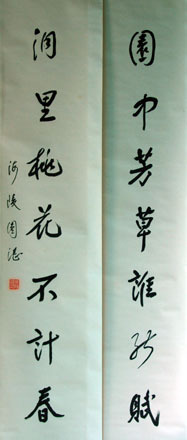 園中芳草誰能賦
洞里桃花不計春